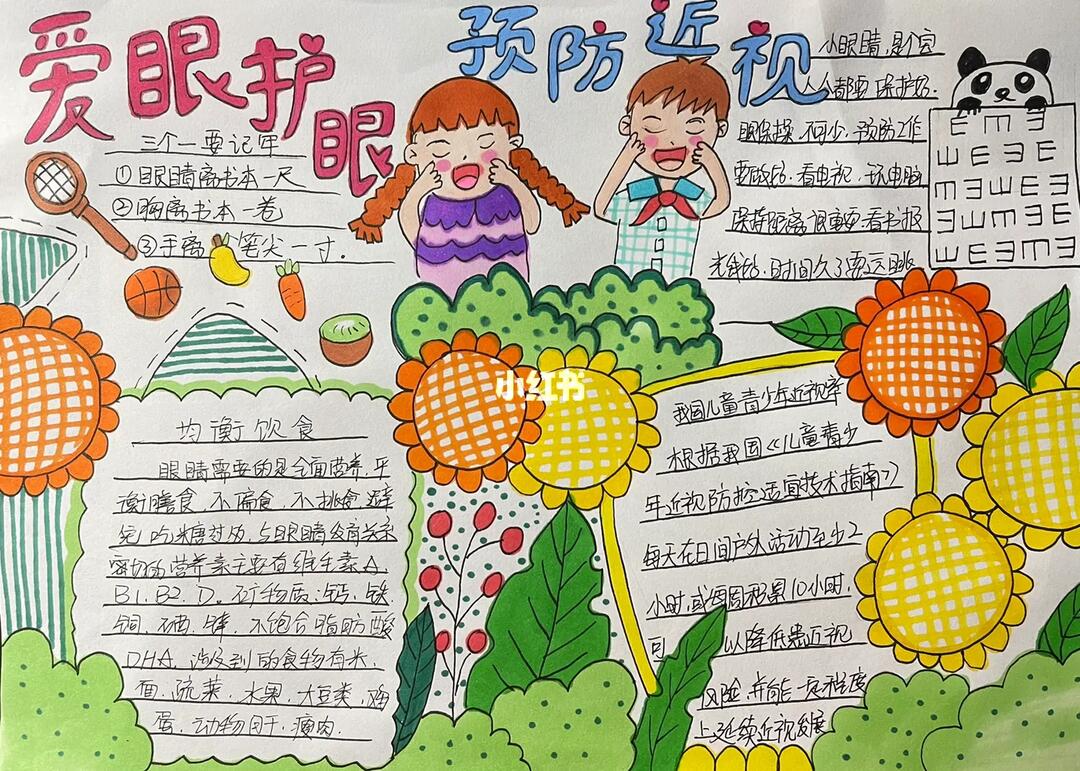 爱眼护眼
预防近视
三个一要记牢
①眼睛离书本一尺
②胸离书本一卷
③手离笔尖一寸.
小眼睛,是个宝
人人都要保护好.
眼保操.不可少.预防工作
要做好.看电视.玩电脑
保持距离很重要.看书报
光线好.时间久了要远眺
E M E
小红书
均衡饮食
眼睛需要的是全面营养.平
衡膳食.不偏食.不挑食.避
免吃糖过多.与眼睛没有关系
密切的营养素主要有维生素A.
B1.B2.D.矿物质:钙.铁
铜.硒.锌.不饱合脂肪酸
DHA.涉及到的食物有米.
面.蔬菜.水果.大豆类.鸡
蛋.动物肝.瘦肉.
我国儿童青少年近视率
根据我国《儿童青少
年近视防控适宜技术指南》
每天在日间户外活动至少2
小时.或每周积累10小时.
可以降低患近视
风险.并能一定程度
上延续近视发展